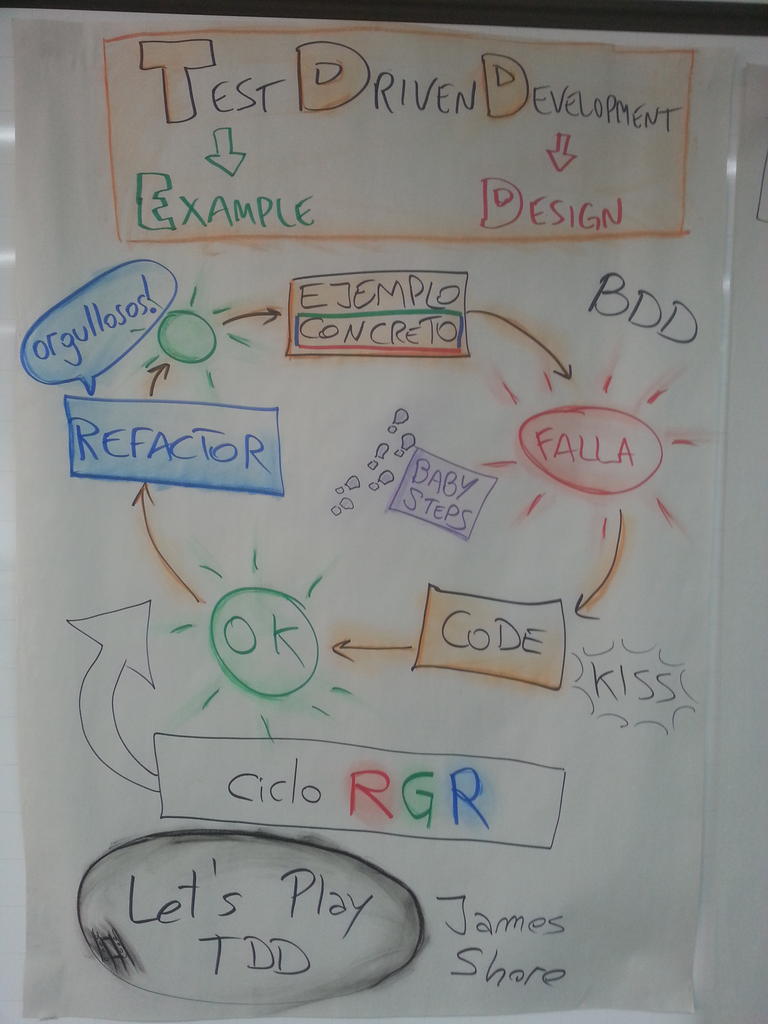 TEST DRIVEN DEVELOPMENT
EXAMPLE
DESIGN
orgullosos!
EJEMPLO
CONCRETO
BDD
REFACTOR
FALLA
BABY
STEPS
OK
CODE
KISS
Ciclo RGR
Let's Play
TDD
James
Shore